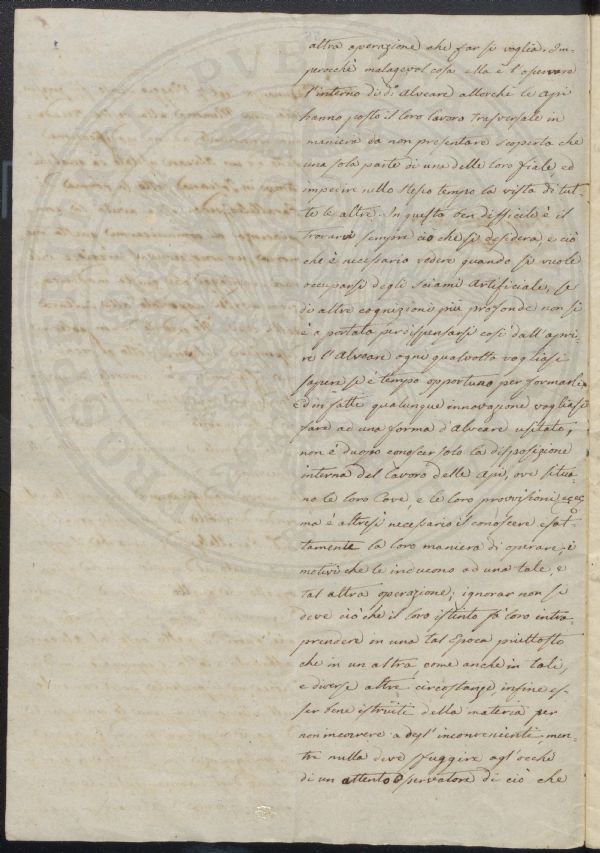 altra operazione che far si voglia. Im-
perocchè malagevol cosa ella è l'osservare
l'interno di d.º Alveare allorchè le Api
hanno posto il loro lavoro trasversale in
maniera da non presentare scoperto che
una sola parte di una delle loro fiale, ed
impedire nello stesso tempo la vista di tut-
te le altre. In questa ben difficile è il
trovarvi sempre ciò che si desidera, e ciò
che è necessario vedere quando si vuole
occuparsi degli Sciami Artificiale, 
di altre cognizioni più profonde non si
è a portata per dispensarsi così dall'apri-
re l'Alveare ogni qualvolta vogliasi
sapere se è tempo opportuno per formarli.
Ed in fatti qualunque innovazione vogliasi
fare ad una forma d'Alveare usitato,
non è duopo conoscer solo la disposizione
interna del lavoro delle Api, ove situa-
no le loro Cove, e le loro provvisioni
ma è altresì necessario il conoscere esat-
tamente la loro maniera di operare, i
motivi che le inducono ad una tale, e
tal altra operazione; ignorar non si
deve ciò che il loro istinto fà loro intra-
prendere in una tal Epoca piuttosto
che in un altra, come anche in tali,
e diverse altre circostanze, infine es-
ser bene istruiti della materia per
non incorrere a degl'inconvenienti, men-
tre nulla deve sfuggire agl'occhi
di un attento osservatore di ciò che